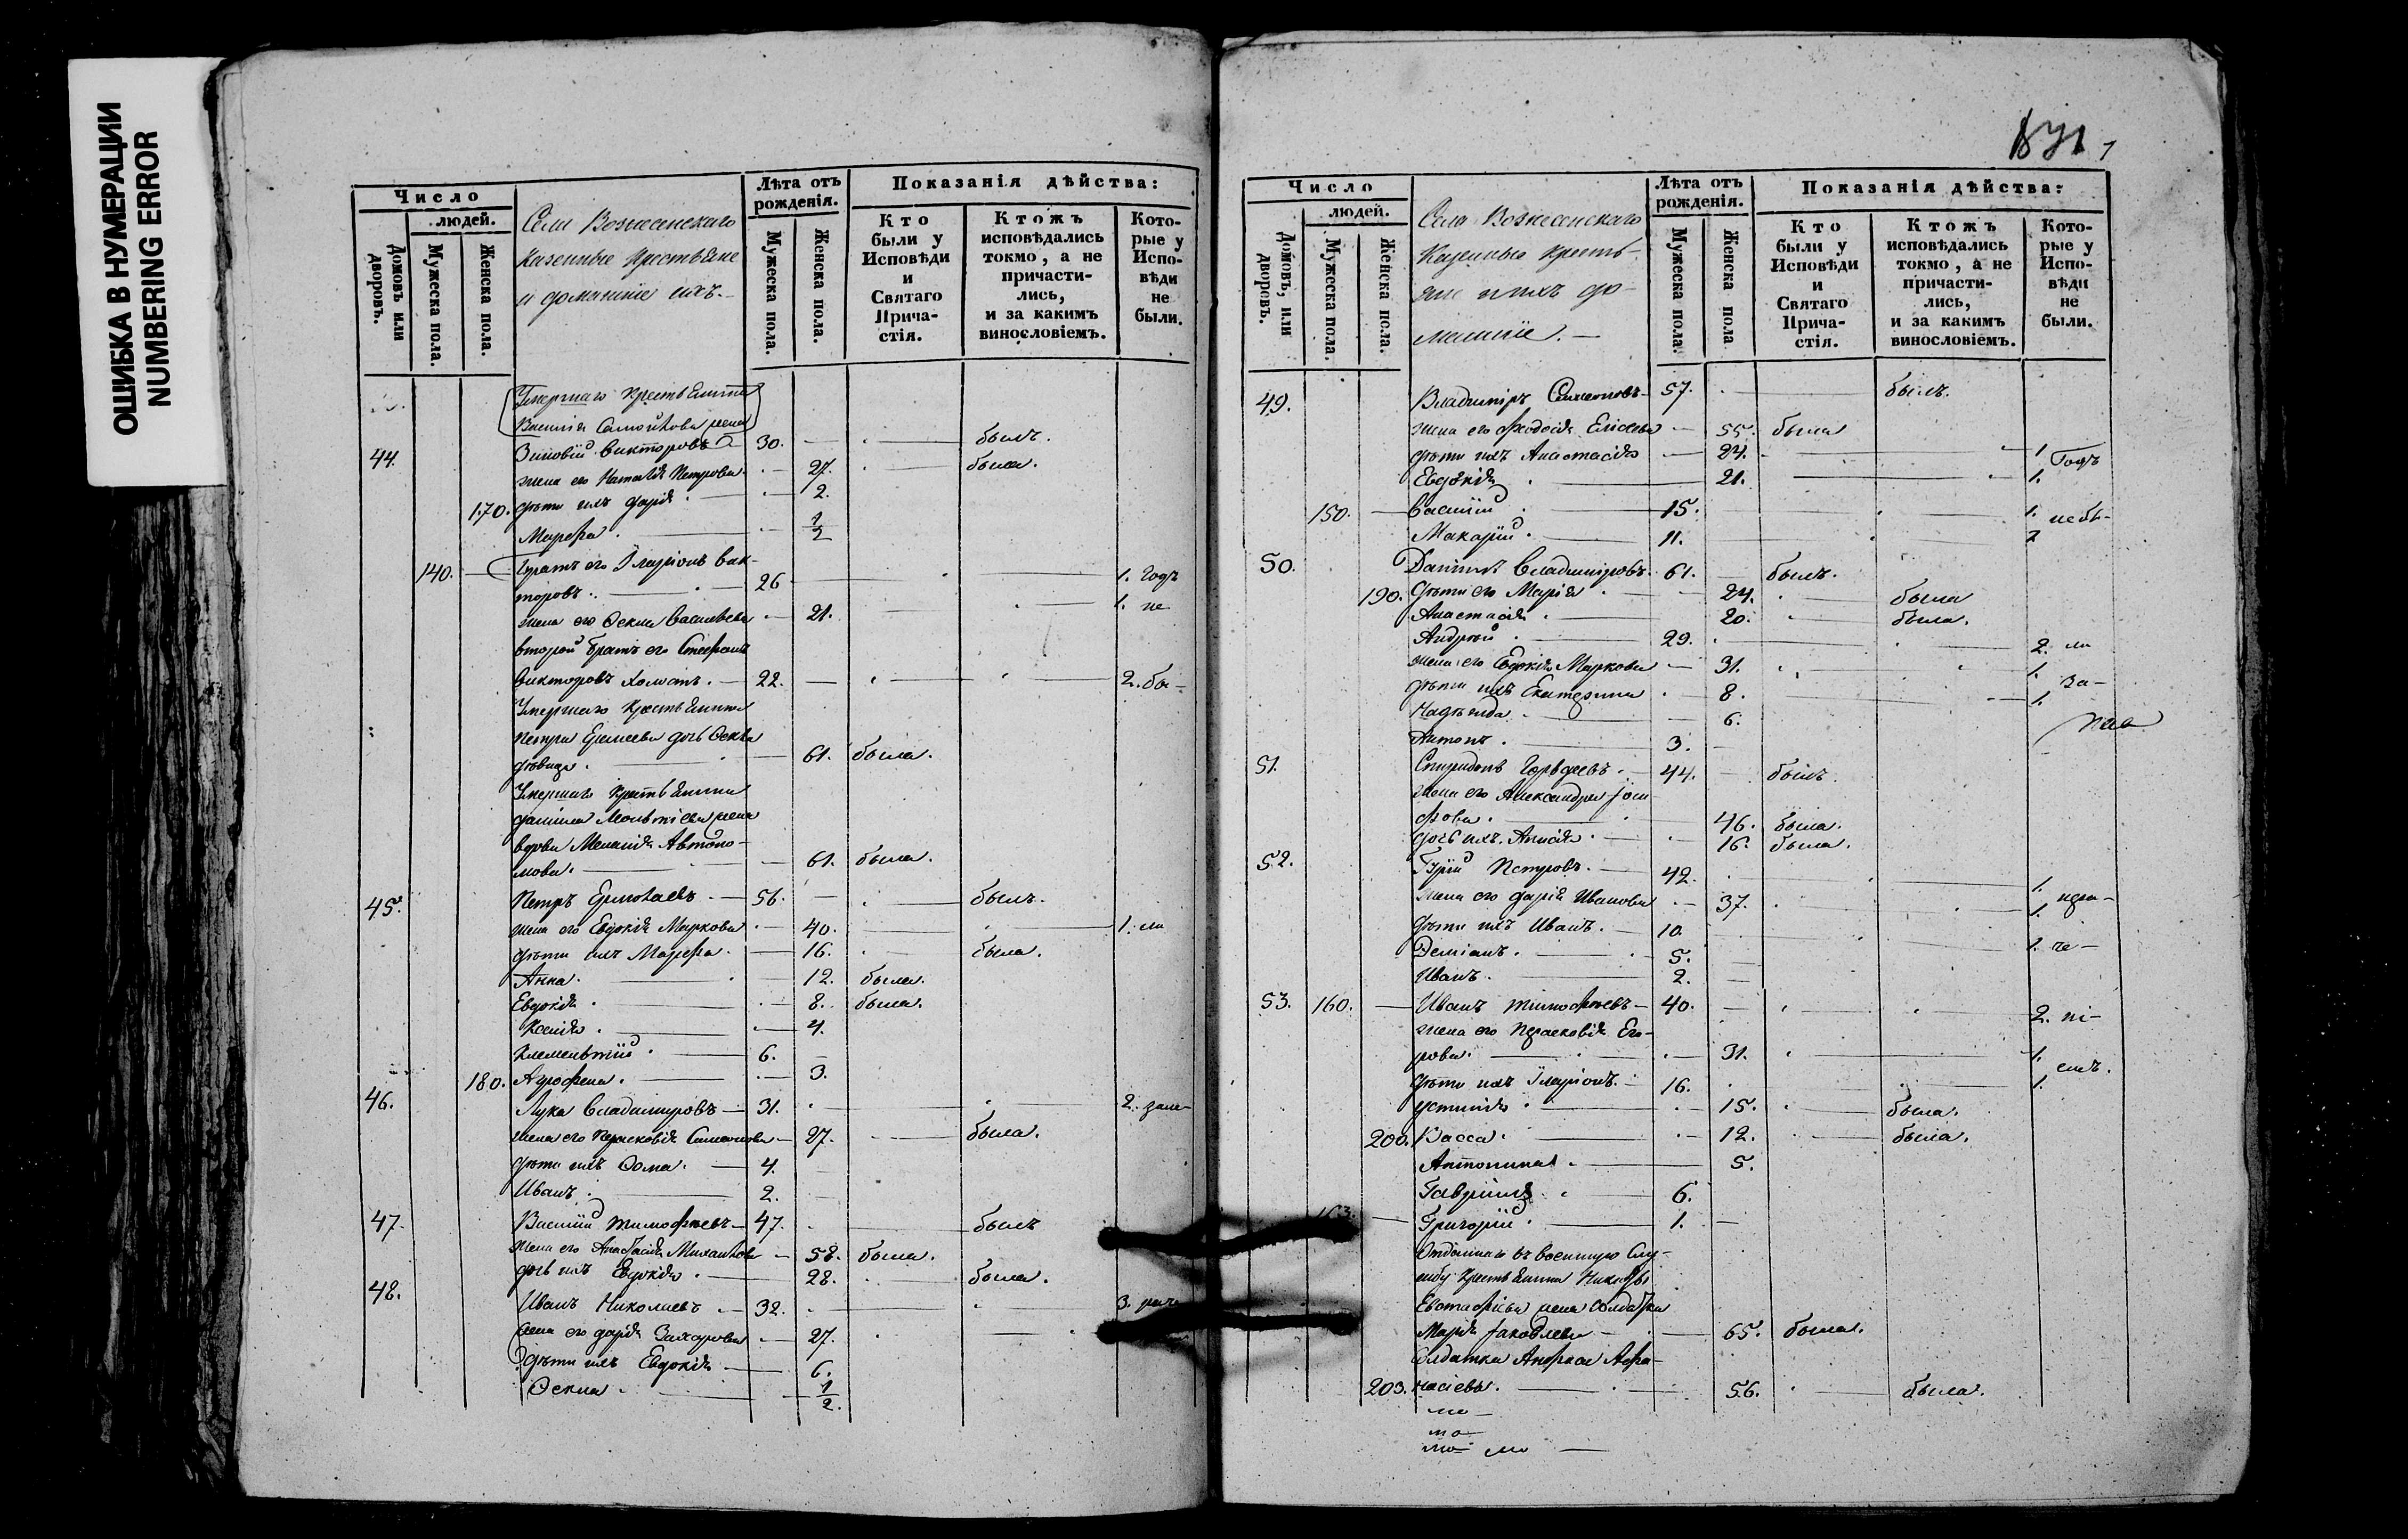 ОШИБКА В НУМЕРАЦИИ
NUMBERING ERROR
Число
людей.
Домовъ или дворовъ.
Мужеска пола.
Женска пола.
Села Вознесенскаго
Казенные Крестьяне
и домашніе ихъ.
Лѣта отъ рожденія.
Мужеска пола.
Женска пола.
Показанія дѣйства:
Кто были у Исповѣди и Святаго Причастія.
Ктожъ исповѣдались токмо, а не причастились, и за какимъ винословіемъ.
Которые у Исповѣди не были.
Умершаго Крестьянина
Василія Самойлова жена
44. Зиновій Викторовъ 30. былъ.
жена его Наталія Петрова 27. была.
170. дѣти ихъ Дарія 2.
Марѳа. 1/2
140. Братъ его Иларіонъ Вик-
торовъ. 26 1. годъ
жена его Ксенія Васильева 21. 1. не
второй братъ его Стефанъ
Викторовъ холостъ. 22. 2. бы-
Умершаго Крестьянина
Петра дочь
дѣвица. 61. была.
Умершаго Крестьянина
Даніила жена
вдова Меланія Автоно-
мова. 61. была.
45. Петръ Ермолаевъ 56. былъ.
жена его Евдокія Маркова 40. 1. ли
дѣти ихъ Марѳа. 16. была.
Анна. 12. была.
Евдокія. 8. была.
Ксенія. 4.
Климентій. 6.
180. Агрофена. 3.
46. Лука Владимировъ 31. 2. зане-
жена его Парасковія Симеонова 27. была.
дѣти ихъ Ѳома. 4.
Иванъ. 2.
47. Василій Тимофѣевъ 47. былъ
жена его Анастасія Михайлова 58. была.
дочь ихъ Евдокія. 28. была.
48. Иванъ Николаевъ 32. 3. рач
жена его Дарія Захарова 27.
дѣти ихъ Евдокія 6.
1/2.
871
Число
людей.
Домовъ, или дворовъ.
Мужеска пола.
Женска пола.
Села Вознесенскаго
Казенные Кресть-
яне и ихъ до-
машніе.
Лѣта отъ рожденія.
Мужеска пола.
Женска пола
Показанія дѣйства:
Кто были у Исповѣди и Святаго Причастія.
Ктожъ исповѣдались токмо, а не причастились, и за какимъ винословіемъ.
Которые у Исповѣди не были.
49. Владиміръ Симеоновъ 57. былъ.
жена его Ѳеодосія Елисеева 55. была
дѣти ихъ Анастасія 24. 1 Годъ
Евдокія 21. 1.
150. Василій 15. 1. небы-
Макарій. 11.
50. Даніилъ Владиміровъ 61. былъ.
190. дѣти его Марія 24. была
Анастасія. 20. была.
Андрей. 29. 2. ли
жена его Евдокія Маркова 31. 1.
дѣти ихъ Екатерина 8. 1. за-
Надежда. 6.
Антонъ. 3.
51. Спиридонъ Гордѣевъ. 44. былъ.
жена его Александра Іоси
фова. 46. была.
дочь ихъ Анисія. 16. была.
52. Гурій Петровъ. 42. 1.
жена его Дарія Иванова 37. 1. нера-
дѣти ихъ Иванъ. 10. 1. че-
Деміанъ. 5.
Иванъ. 2.
53. 160. Иванъ Тимофѣевъ 40. 2. ні-
жена его Парасковія Его-
рова. 31. 1. емъ.
дѣти ихъ Иларіонъ. 16. 1.
Устинія. 15. была.
200. Васса. 12. была.
Антонина. 5.
Гавріилъ. 6.
163. Григорій. 1.
Отданнаго въ военную Слу-
жбу Крестьянина Никиты
Евстафіева жена солдатка
Марія Іаковлева 65. была.
Солдатка Анфиса Афа-
203. насіева. 56. была.